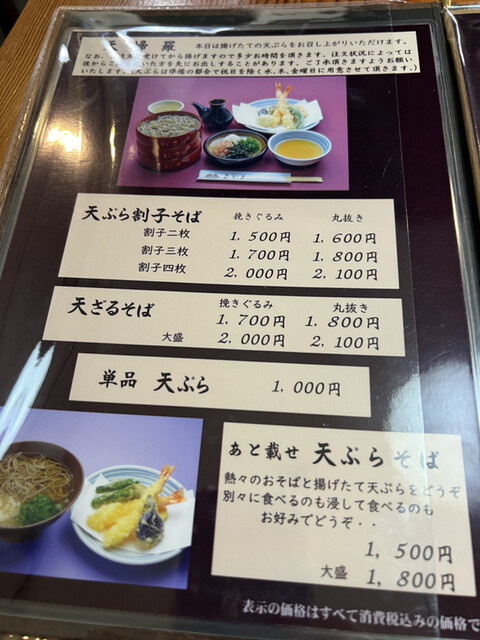 天婦羅
本日は揚げたての天ぷらをお召し上がりいただけます。
なお、注文を受けてから揚げますので多少お時間を頂きます。注文状況によっては
後からご いた方を先にお出しすることがあります。ご了承頂きますようお願い
いたします。(天ぷらは準備の都合で祝日を除く水、木、金曜日に用意させて頂きます。)
天ぷら割子そば 挽きぐるみ 丸抜き
割子二枚 1,500円 1,600円
割子三枚 1,700円 1,800円
割子四枚 2,000円 2,100円
天ざるそば 挽きぐるみ 丸抜き
1,700円 1,800円
大盛 2,000円 2,100円
単品 天ぷら 1,000円
あと載せ 天ぷらそば
熱々のおそばと揚げたて天ぷらをどうぞ
別々に食べるのも浸して食べるのも
お好みでどうぞ・・
1,500円
大盛 1,800円
表示の価格はすべて消費税込みの価格で